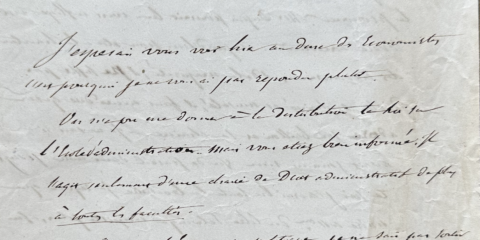 J'esperais vous voir hier au diner des Economistes
c'est pourquoi je ne vous ai pas repondu plutot.
On n'a pu me donner à la distribution
l'Ecole d'administration. Mais vous etiez bien informé; il
s'agit seulement d'une chaire de Droit administratif de plus
à toutes les facultés.
je ne sais pas